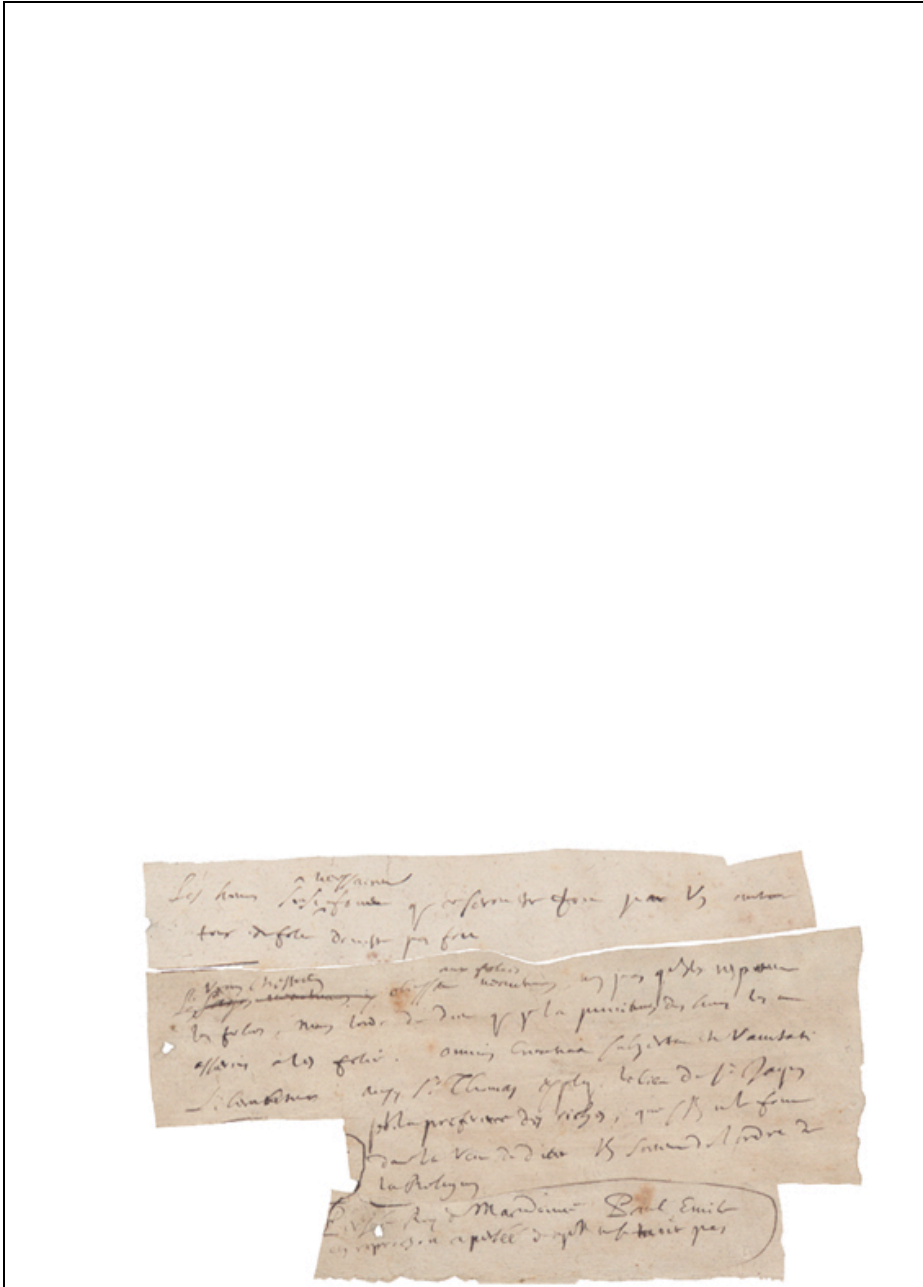 a necessairem
Les homes sont si fous que ce seroit estre fou par un autre
tour de folie de n'estre pas fou
Vrais Chrestiens aux folies
obeissent neantmoins, non pas qu'ils respectent
les folies, mais l'ordre de Dieu qui pr la punition des homes les a
asservis a ces folies. omnis creatura subjecta est Vanitati
Liberabitur ainsy St Thomas expliq. le lieu de St Jaques
pr la preference des riches, que s'ils ne le font
dans la veue de dieu ils sortent de l'ordre de
la Religion
Persée Roy de Macedoine Paul Emile
on reprochoit a persée de ce qu'il ne se tuoit pas